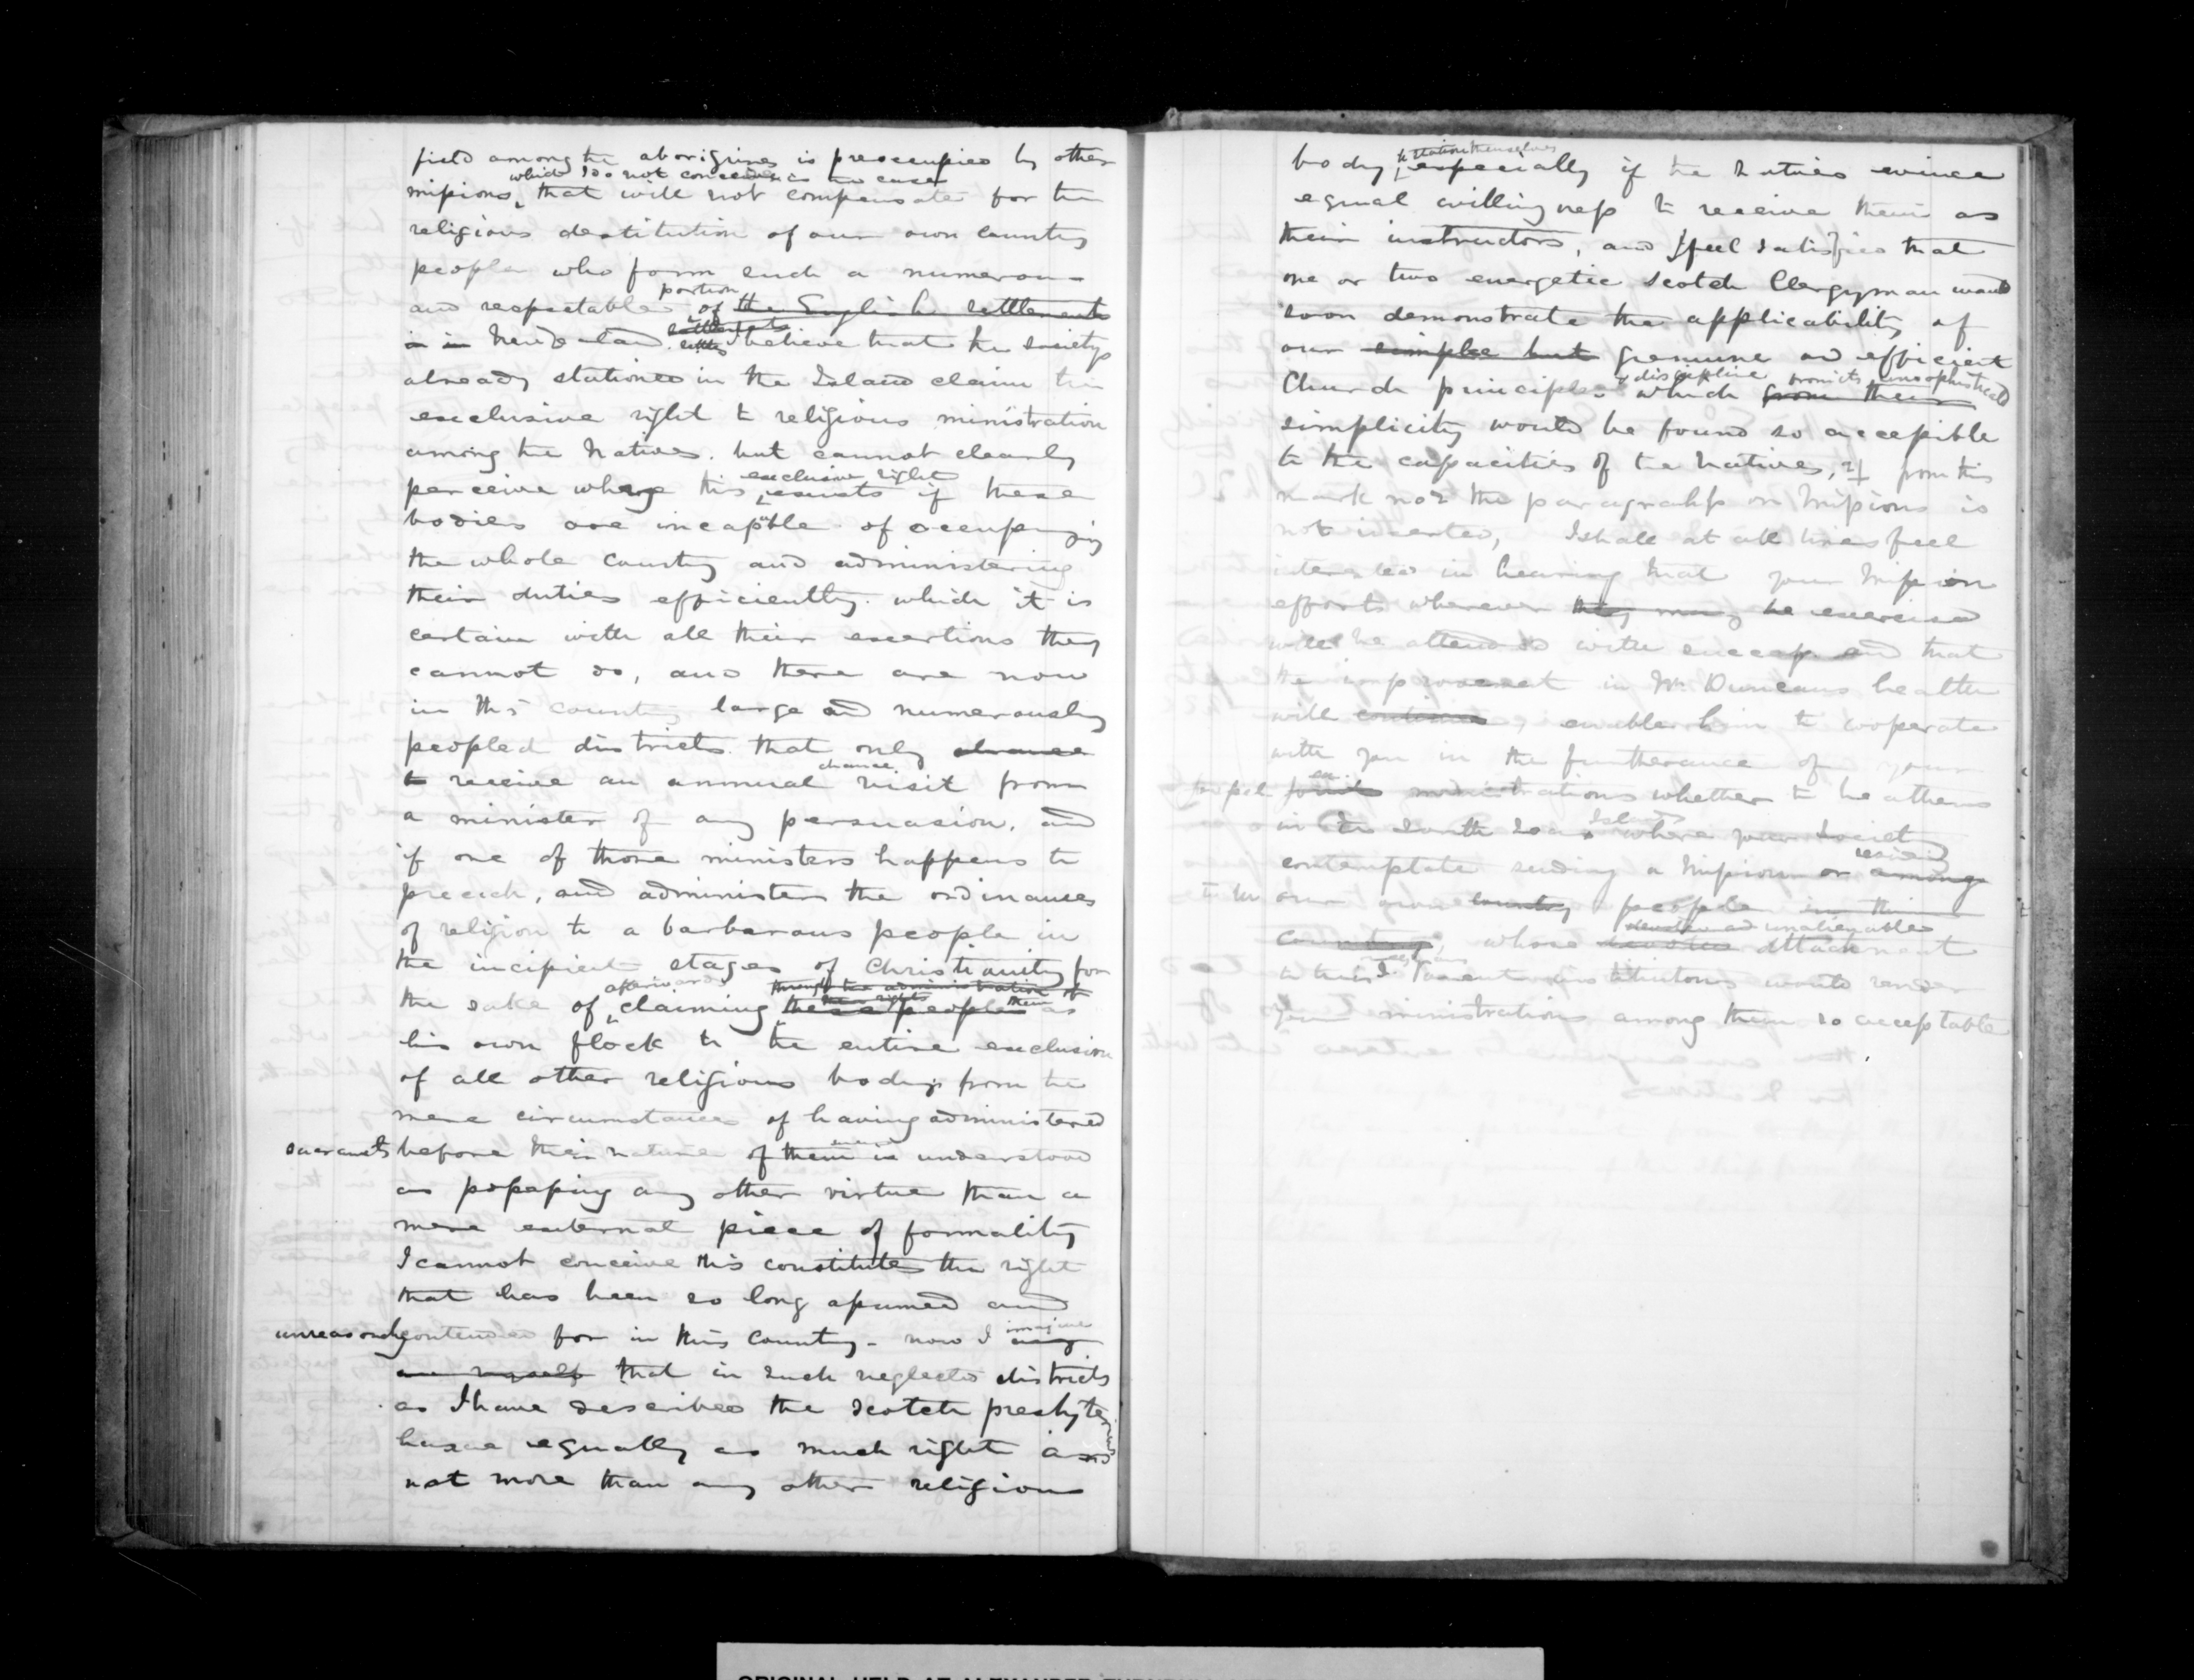 field among the aborigines is preoccupied by other
which I do not conceive is the case
missions, that will not compensate for the
religious destitution of our own country
people who form such a numerous
portion
and respectable of the English settlements
is in New Zealand. I believe that the societys
already stationed in the Island claim the
exclusive right to religious ministration
among the Natives. but cannot clearly
exclusive right
perceive where this exists if these
bodies are incapable of occupying
the whole country and administering
their duties efficiently. which it is
certain with all their exertions they
cannot do, and there are now
in this country large and numerously
peopled districts. that only chance
chance
to receive an annual visit from
a minister of any persuasion, and
if one of those ministers happens to
preach, and administer the ordinances
of religion to a barbarous people in
the incipient stages of Christianity for
afterwards through the administration of
the sake of claiming these people them as
his own flock to the entire exclusion
of all other religious bodys from the
mere circumstance of having administered
sacraments before their nature of them is understood
as possessing any other virtue than a
mere external piece of formality
I cannot conceive this constitutes the right
that has been so long assumed and
unreasonably contended for in this country - now I
imagine
myself that in such neglected districts
as I have described the Scotch presbyterians
have equally as much right and
not more than any other religious
to station themselves
body, especially if the Natives evince
equal willingness to receive them as
their instructors, and I feel satisfied that
one or two energetic Scotch Clergyman would
soon demonstrate the applicability of
our simple but genuine and efficient
& discipline from its unsophisticated
Church principles which from their
simplicity would be found so accessible
to the capacities of the Natives, from this
mark no 2 the paragraph on Missions is
not inserted, I shall at all times feel
interested in hearing that your Mission
efforts wherever they may be exercised
will be attended with success and that
the improvement in Mr Duncans health
will continue, enable him to cooperate
with you in the furtherance of your
gospel ministrations whether to heathens
Islands
in the South Seas where your Society
residing
contemplate sending a Mission or among
to our own country people in this
unalienable
country, whose devoted attachment
to their Parent institutions would render
your ministrations among them so acceptable
ORIGINAL HELD AT ALEXANDER TURNBULL